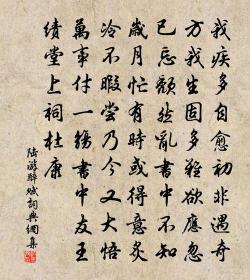 我疾多自愈初非遇奇
方我生固多難欲應忽
已忘頹然亂書中不知
歲月忙有時或得意炙
冷不暇嘗乃今又大悟
萬事付一觴書中友王
績堂上祠杜康
陸游醉賦詞典網集